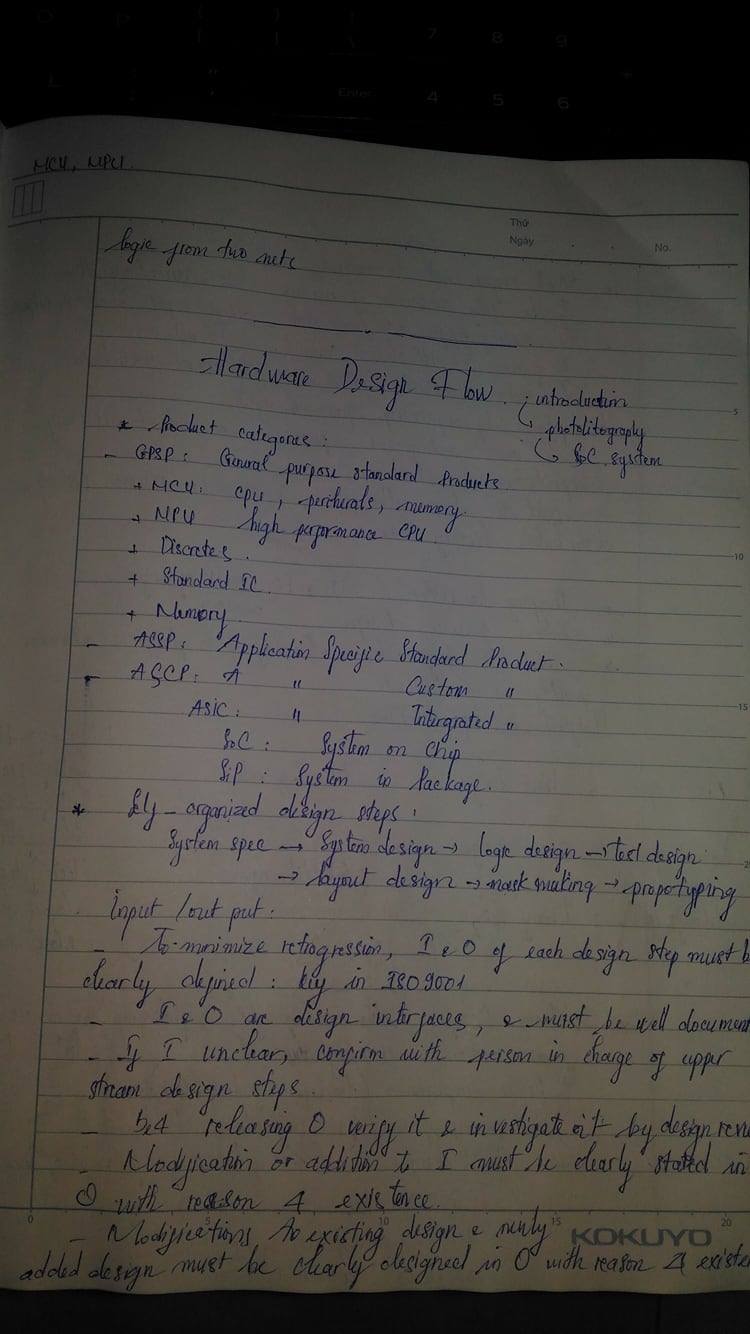 MCU, MPU
Thứ
Ngày
No.
logic from two nets
Hardware Design Flow
introduction
photolitography
SoC system
* Product categores:
- GPSP: General purpose standard Products
+ MCU: cpu, peripherals, memory.
+ MPU high performance CPU
+ Discretes.
+ Standard IC.
+ Memory
- ASSP: Application Specific Standard Product.
- ASCP: A " Custom "
ASIC: " Intergrated "
SoC: System on Chip
SiP: System in Package.
* organized design steps:
System spec → System design → logic design → test design
→ layout design → mask making → propotyping
Input/out put:
- To minimize retrogression, I & O of each design step must b
clearly defined: key in ISO 9001
- I & O are design interfaces, & must be well document
- If I unclear, confirm with person in charge of upper
stream design steps.
- be4 releasing O verify it & investigate it by design revi
- Modification or addition to I must be clearly stated in
O with reason 4 existence.
- Modifications to existing design & newly
added design must be clearly designed in O with reason 4 existe
KOKUYO
5
10
15
0
5
10
15
20
Enter
7
8
9
4
5
6